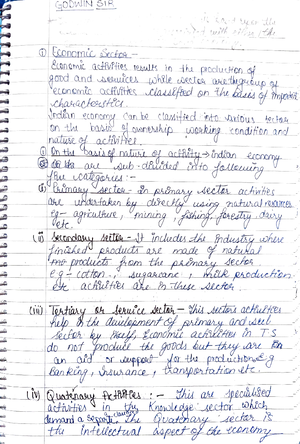 GODWIN SIR
① Economic Sector :-
Economic activities results in the production of
good and services while sector are the group of
economic activities classified on the bases of
characteristics.
Indian economy can be classified into various sector
on the basis of ownership working condition and
nature of activities.
① On the basis of nature of activity → Indian economy
are sub-divided into following
categories :-
(i) Primary sector - In primary sector activities
are undertaken by directly using natural resources
eg - agriculture, mining, fishing, forestry, dairy
etc.
(ii) Secondary sector - It includes the industry where
finished products are made of natural
products from the primary sector
e.g - cotton, sugarcane, milk production
etc activities are in these sector
(iii) Tertiary or service sector - This sectors activities
help in the development of primary and
sector by itself. Economic activities in T.S
do not produce the goods but they are
an aid or support for the production e.g
banking, insurance, transportation etc.
(iv) Quaternary Activities :- This are specialised
activities in the Knowledge sector which
demand a separate The Quaternary sector is
the intellectual aspect of the economy